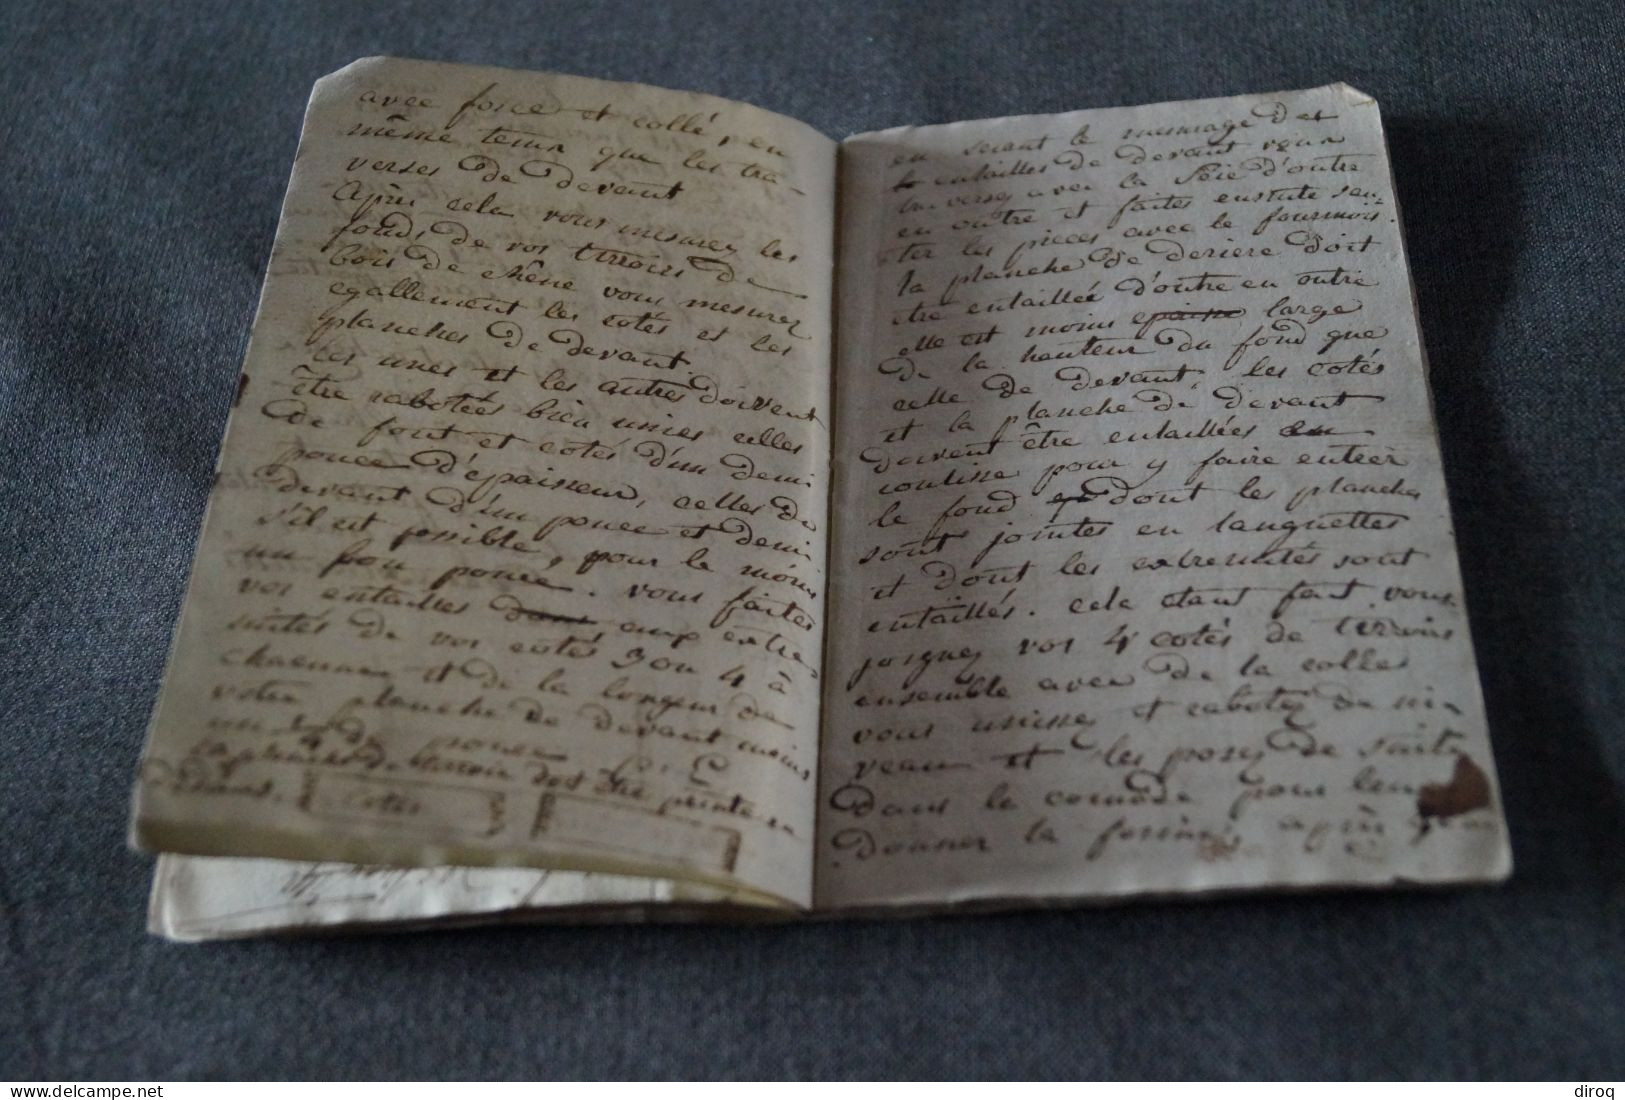 avec force et collé, en
même tems que les tra-
verses de devant
Après cela vous mesurez les
fonds de vos tirroirs de
bois de chêne vous mesurez
egallement les cotés et les
planches de devant.
Les unes et les autres doivent
être rabotées bien unies celles
de font et cotés d'un demi
pouce d'épaisseur, celles de
devant d'un pouce et demi
s'il est possible, pour le moins
un bon pouce. vous faites
vos entailles dans aux extre
mités de vos cotés 3 ou 4 à
chacunne et de la longeur de
votre planche de devant moins
un pouce
la planche de derriere doit être jointe en
dedans.
cotés
en sciant le message des
entailles de devant vous
traversez avec la Scie d'outre
en outre et faites ensuite sau-
ter les pièces avec le fourmois.
la planche de deriere doit
être entaillée d'outre en outre
elle est moins epaisse large
de la hauteur du fond que
celle de devant, les cotés
et la planche de devant
doivent être entaillées en
coulisse pour y faire entrer
le fond dont les planches
sont jointes en languettes
et dont les extremités sont
entaillés. cela etant fait vous
joignez vos 4 cotés de tirroirs
ensemble avec de la colle
vous unissez et rabotez de ni-
veau et les posez de suite
dans la comode pour leur
donner la après